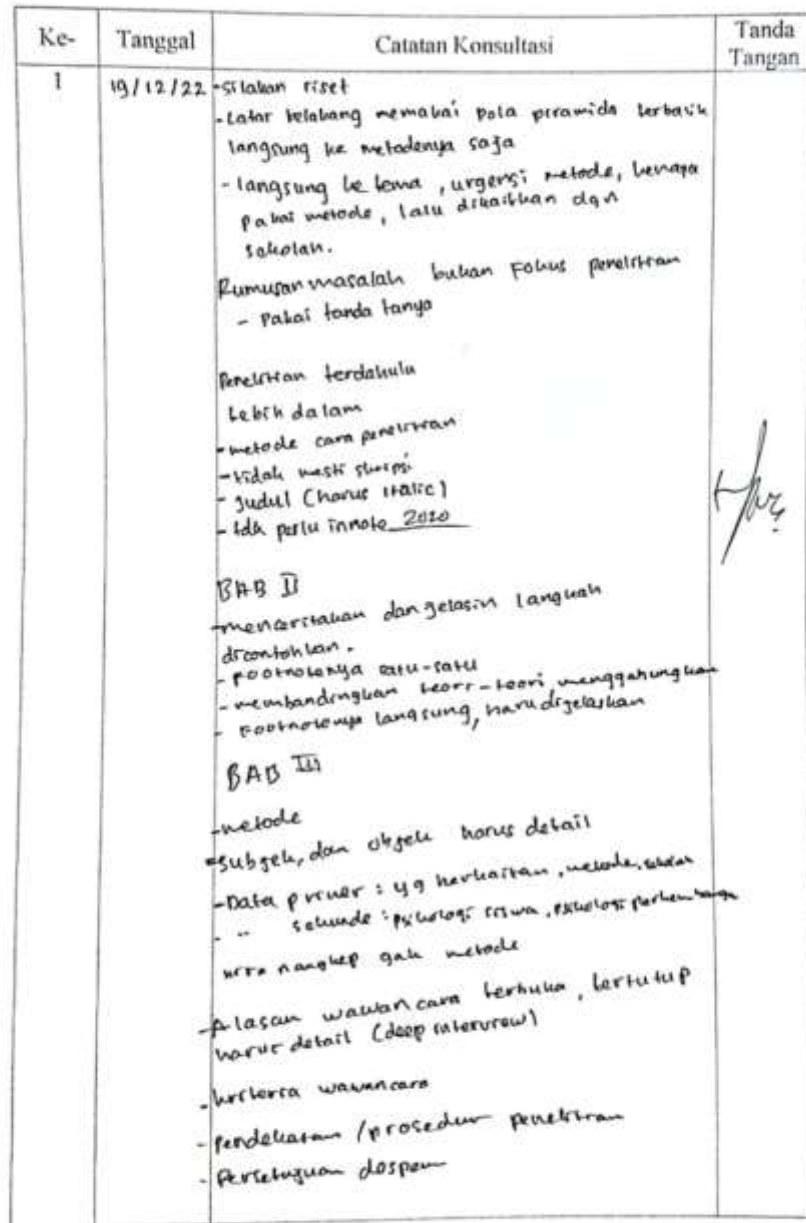 Ke- Tanggal Catatan Konsultasi Tanda Tangan
1 19/12/22 -silakan riset
-Latar belakang memakai pola piramida terbalik
langsung ke metodenya saja
- langsung ke tema, urgensi metode, kenapa
pakai metode, lalu dikaitkan dgn
sekolah.
Rumusan masalah bukan Fokus penelitian
- Pakai tanda tanya
Penelitian terdahulu
Lebih dalam
-metode cara penelitian
-tidak mesti skripsi
- Judul (harus italic)
- tdk perlu 2020
BAB II
-menceritakan dan jelasin langkah
dicontohkan.
- Footnotenya satu-satu
- membandingkan teori-teori, menggabungkan
- Footnotenya langsung, harus dijelaskan
BAB III
-metode
-subjek, dan objek harus detail
-Data primer : yg berkaitan, metode, sekolah
- " sekunde : psikologi siswa, psikologi perkembangan
nangkep gak metode
-Alasan wawancara terbuka, tertutup
harus detail (deep interview)
- kriteria wawancara
- pendekatan / prosedur penelitian
- Persetujuan dospem